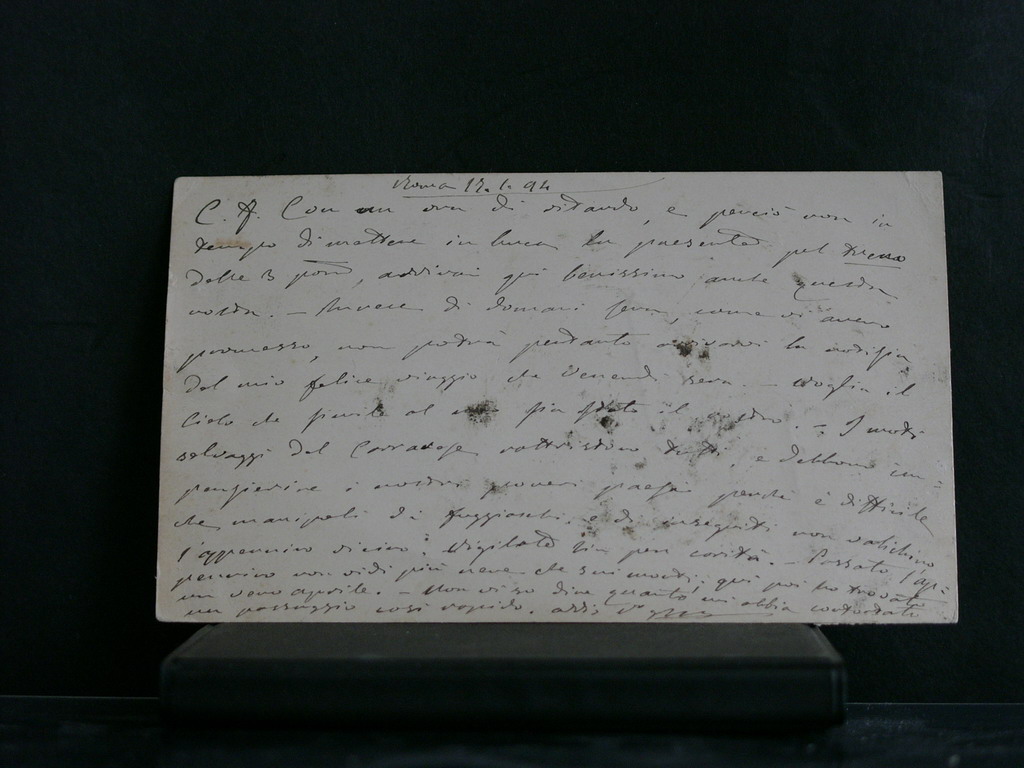 Roma 17. 1. 94
C. A. Con un ora di ritardo, e perciò non in
tempo di mettere in buca la presente pel treno
delle 3 pom, arrivai qui benissimo anche questa
volta. – Invece di domani sera, come vi avevo
promesso, non potrà pertanto arrivarvi la notizia
del mio felice viaggio che Venerdì sera. – Voglia il
Cielo che sia stato il – I moti
selvaggi del Carrarese rattristano tutti, e debbono im=
pensierire i nostri poveri paesi perché è difficile
che manipoli di fuggiaschi, e di inseguiti non valichino
l'appennino vicino. Vigilate sin per carità. – Passato l'ap=
pennino non vidi più neve che sui monti; qui poi ho trovato
un vero aprile. – Non vi so dire quanto mi abbia confortato
un passaggio così rapido.